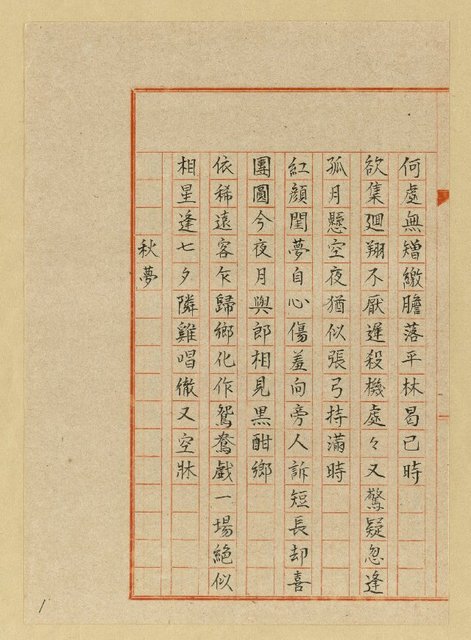 何處無矰繳膽落平林曷已時
欲集迴翔不厭遲殺機處々又驚疑忽逢
孤月懸空夜猶似張弓持滿時
紅顏閨夢自心傷羞向旁人訴短長却喜
團圓今夜月與郎相見黑酣鄉
依稀遠客乍歸鄉化作鴛鴦戲一場絕似
相星逢七夕隣雞唱徹又空牀
秋夢
1